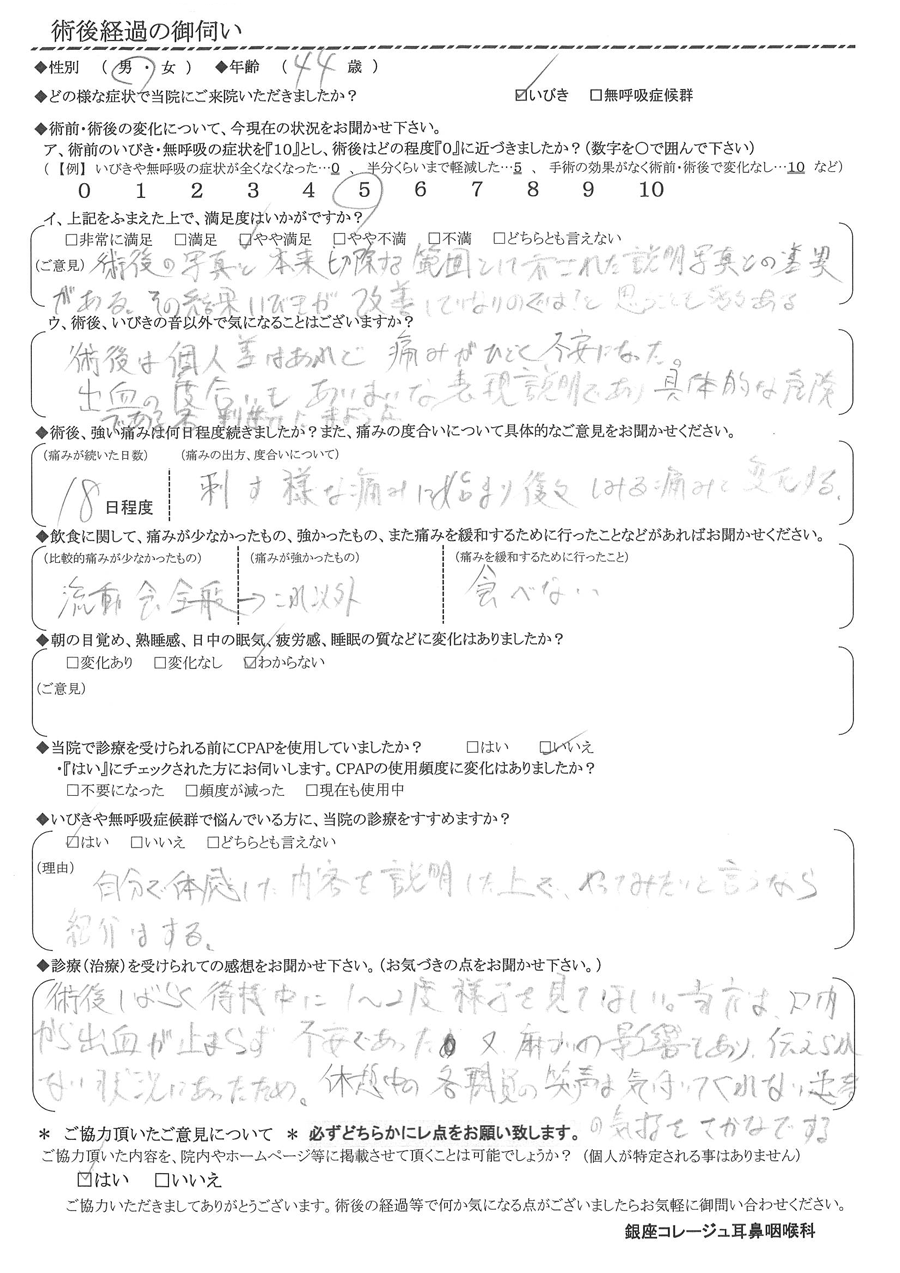 術後経過の御伺い
◆性別 （ 男 ・ 女 ） ◆年齢 （ 44 歳 ）
◆どの様な症状で当院にご来院いただきましたか？ ☑いびき □無呼吸症候群
◆術前・術後の変化について、今現在の状況をお聞かせ下さい。
ア、術前のいびき・無呼吸の症状を『10』とし、術後はどの程度『0』に近づきましたか？（数字を○で囲んで下さい）
（【例】 いびきや無呼吸の症状が全くなくなった…0 、 半分くらいまで軽減した…5 、 手術の効果がなく術前・術後で変化なし…10 など）
0 1 2 3 4 5 6 7 8 9 10
イ、上記をふまえた上で、満足度はいかがですか？
□非常に満足 □満足 ☑やや満足 □やや不満 □不満 □どちらとも言えない
（ご意見） 術後の写真と本来切除する範囲として示された説明写真との差異
がある。その結果いびきが改善していないのでは？と思うことも多々ある
ウ、術後、いびきの音以外で気になることはございますか？
術後は個人差はあれど 痛みがひどく不安になった。
出血の度合いもあいまいな表現説明であり具体的な危険
であるか否
◆術後、強い痛みは何日程度続きましたか？また、痛みの度合いについて具体的なご意見をお聞かせください。
（痛みが続いた日数） （痛みの出方、度合いについて）
18 日程度 刺す様な痛みに始まり後々しみる痛みに変化する。
◆飲食に関して、痛みが少なかったもの、強かったもの、また痛みを緩和するために行ったことなどがあればお聞かせください。
（比較的痛みが少なかったもの） （痛みが強かったもの） （痛みを緩和するために行ったこと）
流動食全般 → これ以外 食べない
◆朝の目覚め、熟睡感、日中の眠気、疲労感、睡眠の質などに変化はありましたか？
□変化あり □変化なし ☑わからない
（ご意見）
◆当院で診療を受けられる前にCPAPを使用していましたか？ □はい ☑いいえ
・『はい』にチェックされた方にお伺いします。CPAPの使用頻度に変化はありましたか？
□不要になった □頻度が減った □現在も使用中
◆いびきや無呼吸症候群で悩んでいる方に、当院の診療をすすめますか？
☑はい □いいえ □どちらとも言えない
（理由） 自分で体感した内容を説明した上で、やってみたいと言うなら
紹介はする。
◆診療（治療）を受けられての感想をお聞かせ下さい。（お気づきの点をお聞かせ下さい。）
術後しばらく待機中に1〜2度様子を見てほしい。当方は、口内
から出血が止まらず 不安であった 又、麻酔の影響もあり、伝えられ
ない状況にあったため。休憩中の各職員の笑声は気付いてくれない患者
の気持をさかなでする
＊ ご協力頂いたご意見について ＊ 必ずどちらかにレ点をお願い致します。
ご協力頂いた内容を、院内やホームページ等に掲載させて頂くことは可能でしょうか？ （個人が特定される事はありません）
☑はい □いいえ
ご協力いただきましてありがとうございます。術後の経過等で何か気になる点がございましたらお気軽に御問い合わせください。
銀座コレージュ耳鼻咽喉科